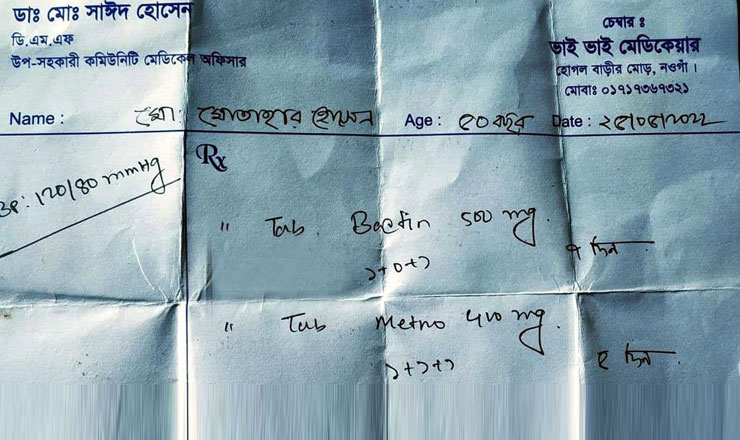 ডাঃ মোঃ সাঈদ হোসেন
ডি.এম.এফ
উপ-সহকারী কমিউনিটি মেডিকেল অফিসার
চেম্বার ঃ
ভাই ভাই মেডিকেয়ার
হোগল বাড়ীর মোড়, নওগাঁ।
মোবাঃ ০১৭১৭৩৬৭৩২১
Name : মো: মোতাহার হোসেন Age : ৫০ বছর Date :
BP: 120/80 mmHg
Rx
" Tab. Bactin 500 mg.
১+০+১ ৭ দিন
" Tab Metro 400 mg.
১+১+১ দিন